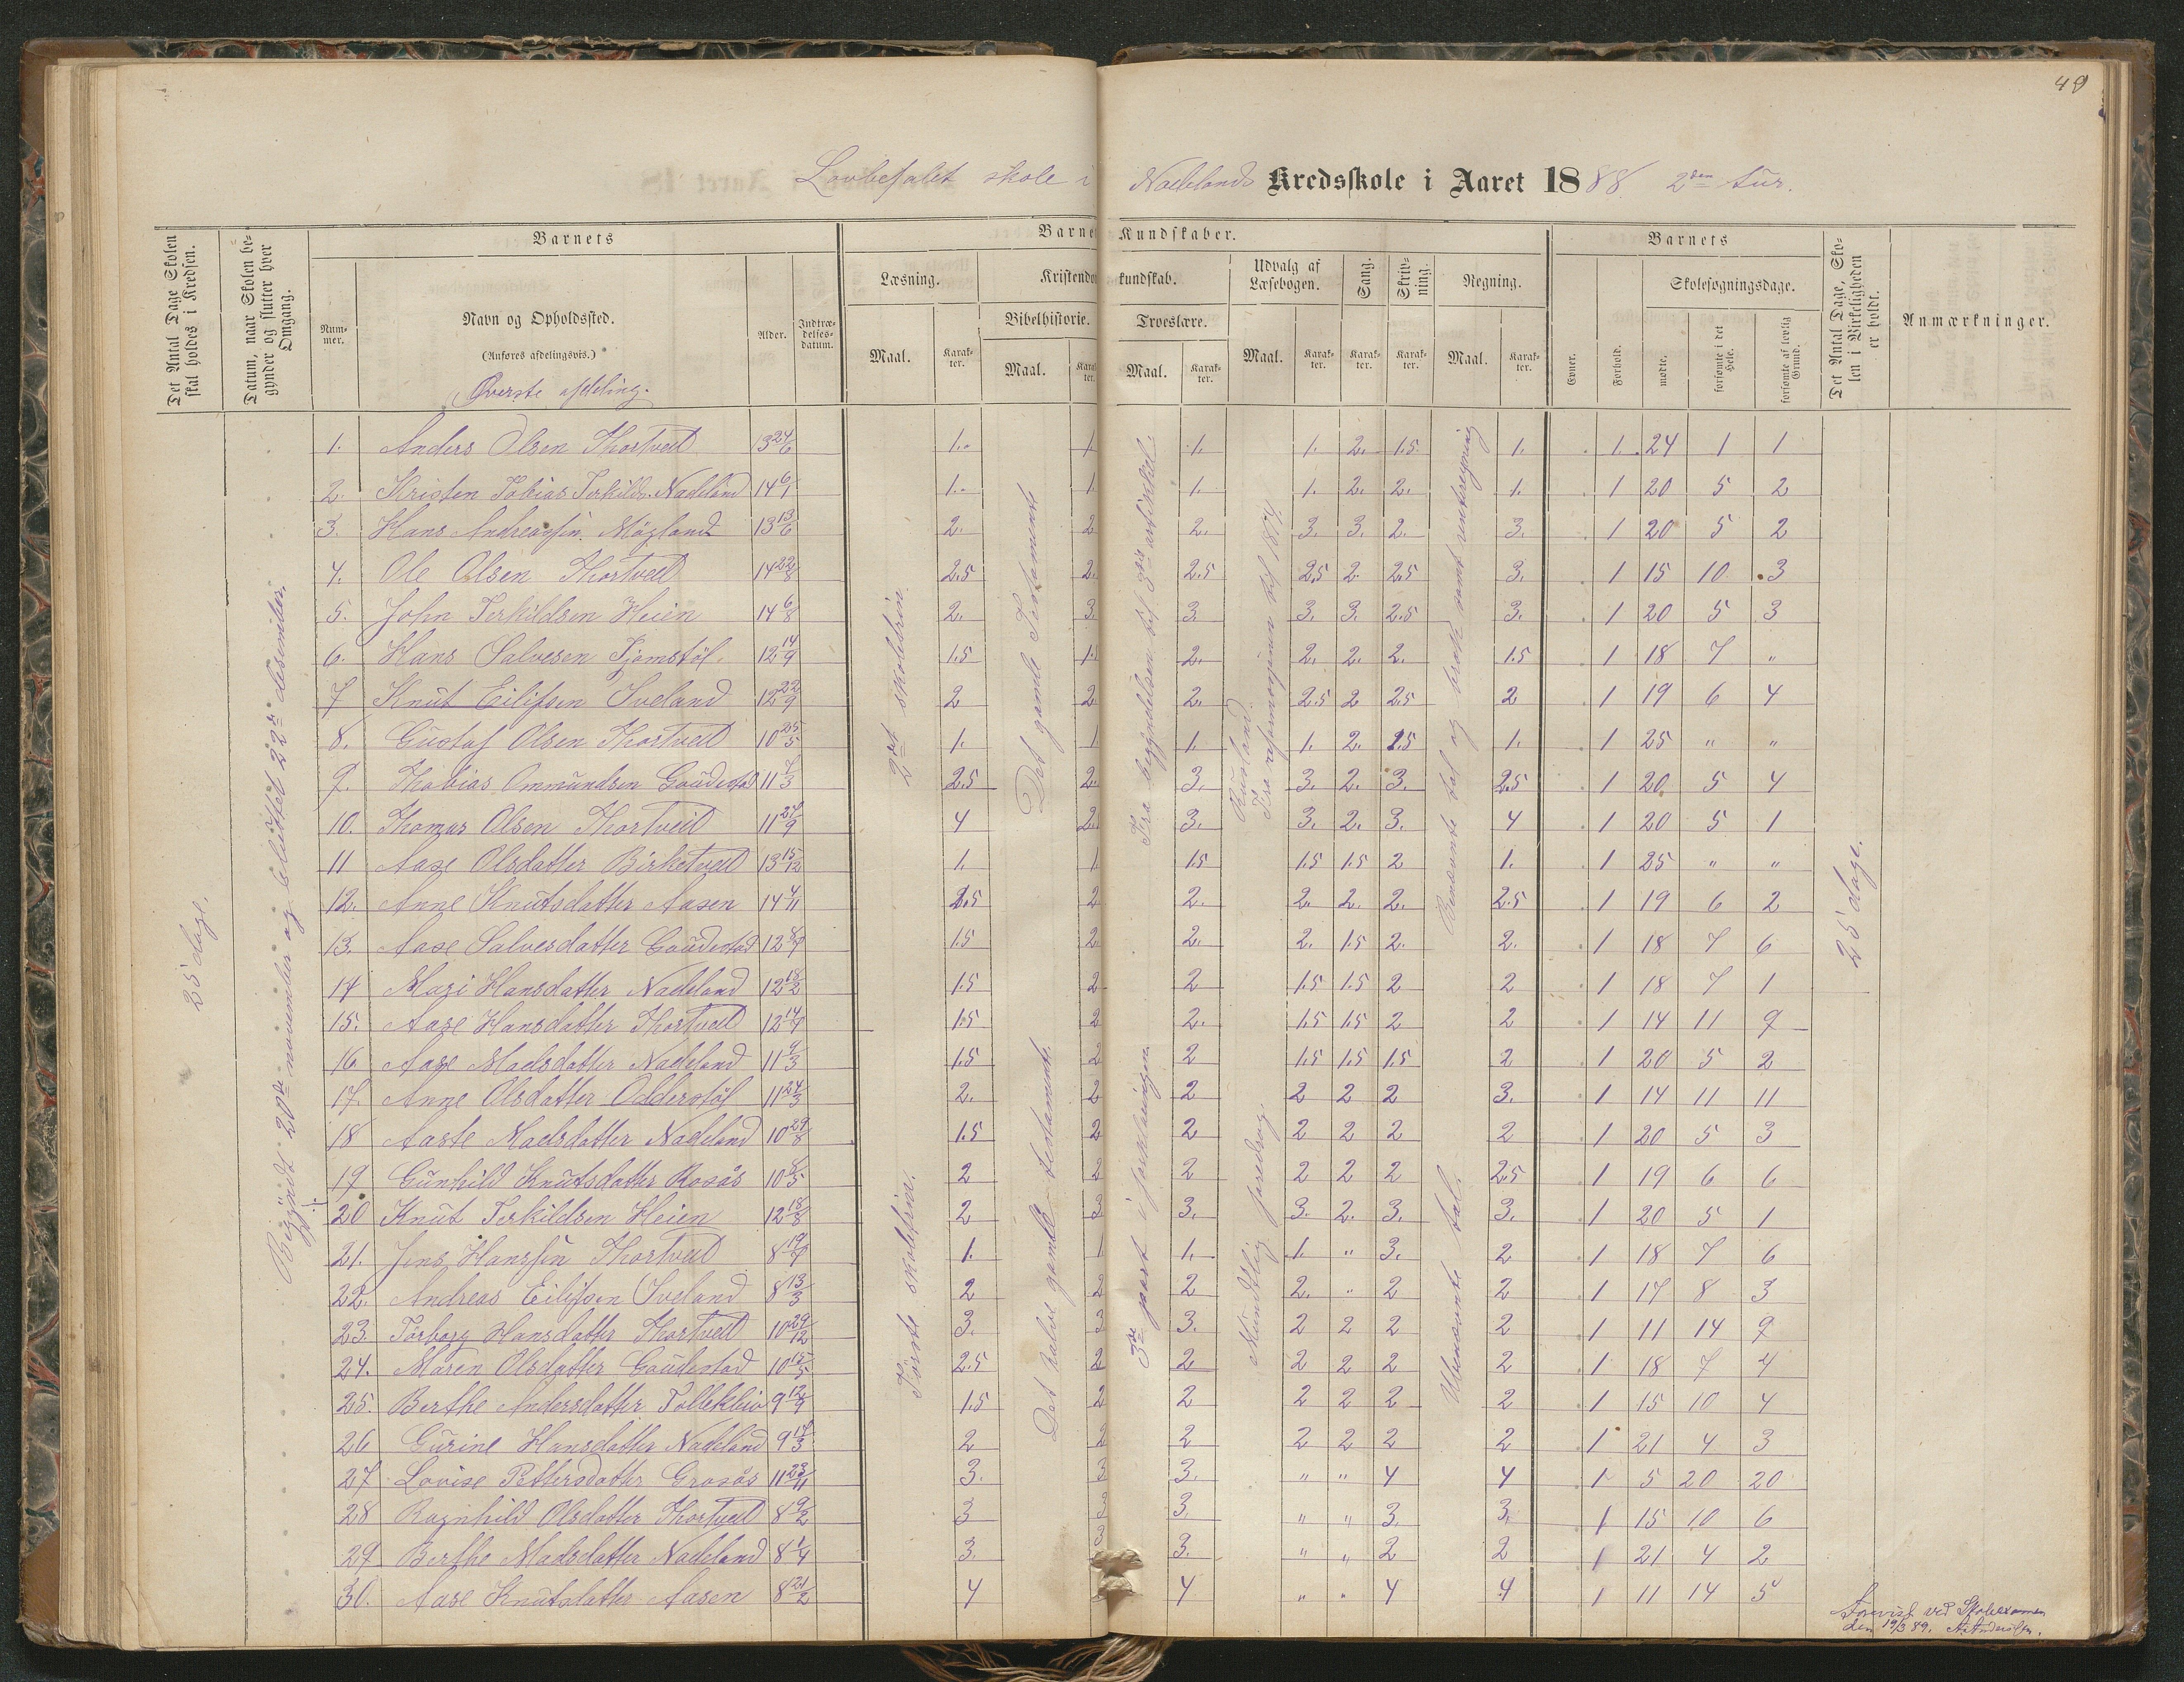 49
Lovbefalet skole i Nadelands Kredsskole i Aaret 1888. 2den tur.
Det Antal Dage Skolen skal holdes i Kredsen.
Datum, naar Skolen begynder og slutter hver Omgang.
Barnets
Nummer.
Navn og Opholdssted.
(Anføres afdelingsvis.)
Øverste afdeling.
Alder.
Indtrædelsesdatum.
Barnets Kundskaber.
Læsning.
Maal.
Karakter.
Kristendomskundskab.
Bibelhistorie.
Maal.
Karakter.
Troeslære.
Maal.
Karakter.
Udvalg af Læsebogen.
Maal.
Karakter.
Sang.
Karakter.
Skrivning.
Karakter.
Regning.
Maal.
Karakter.
Barnets
Evner.
Forhold.
Skolesøgningsdage.
mødte.
forsømte i det Hele.
forsømte af lovlig Grund.
Det Antal Dage, Skolen i Virkeligheden er holdt.
Anmærkninger.
25 dage.
Begyndt 20de november og sluttet 22de desember.
2det skoletrin
Det gamle Testamente
Fra begyndelsen til 3die artikkel.
Rusland.
Fra reformasjonen til 1814.
Benævnte tal og brøk samt renteregning
25 dage.
Første skoletrin.
Det halve gamle testamente
3die part i forklaringen.
Mundtlig foredrag.
Ubenævnte tal.
1. Anders Olsen Thortveit 13 24/6 1. 1 1. 1. 2. 1.5 1. 1. 24 1 1
2. Kristen Tobias Terkilds. Nadeland 14 6/1 1. 1. 1. 1. 2. 2. 1. 1 20 5 2
3. Hans Andreassen Møgland 13 13/6 2. 2 2. 3. 3. 2. 3. 1 20 5 2
4. Ole Olsen Thortveit 14 22/8 2.5 2. 2.5 2.5 2. 2.5 3. 1 15 10 3
5. John Terkildsen Heien 14 6/8 2. 3. 3. 3. 3. 2.5 3. 1 20 5 3
6. Hans Salvesen Tjomstøl. 12 14/9 1.5 1. 2. 2. 2. 2. 1.5 1 18 7 "
7 Knut Eilifsen Iveland 12 22/9 2 2. 2. 2.5 2 2.5 2 1 19 6 4
8. Gustaf Olsen Thortveit 10 25/5 1. 1. 1. 1. 2. 2.5 1. 1 25 " "
9. Thobias Ommundsen Gaudestad 11 7/3 2.5 2. 3. 3. 2. 3. 2.5 1 20 5 4
10. Thomas Olsen Thortveit 11 27/9 4 2. 3. 3. 2. 3. 4 1 20 5 1
11 Aase Olsdatter Birketveit 13 15/12 1. 1. 1.5 1.5 1.5 2 1. 1 25 " "
12. Anne Knutsdatter Aasen 14 4/11 2.5 2 2. 2. 2. 2. 2.5 1 19 6 2
13. Aase Salvesdatter Gaudestad 12 8/7 1.5 2. 2. 2. 1.5 2. 2. 1 18 7 6
14 Mari Hansdatter Nadeland 12 18/2 1.5 2 2 1.5 1.5 2 2 1 18 7 1
15. Aase Hansdatter Thortveit 12 14/7 1.5 2 2. 1.5 1.5 2 2 1 14 11 9
16 Aase Madsdatter Nadeland 11 9/3 1.5 2 2 1.5 1.5 1.5 2 1 20 5 2
17. Anne Olsdatter Odderstøl 11 24/3 2. 2 2 2 2 2 3. 1 14 11 11
18 Aaste Madsdatter Nadeland 10 29/8 1.5 2 2 2 2 2 2 1 20 5 3
19 Gunhild Knutsdatter Rosås 10 8/5 2 2 2 2 2 2 2.5 1 19 6 6
20 Knut Terkildsen Heien 12 18/8 2 3 3. 3. 2. 3. 3. 1 20 5 1
21. Jens Hanssen Thortveit 8 19/7 1. 1 1. 1. " 3. 2 1 18 7 6
22. Andreas Eilifsen Iveland 8 13/3 2 2 2 2. " 2 2 1 17 8 3
23. Torborg Hansdatter Thortveit 10 29/12 3. 3 3. 2 2 2 2 1 11 14 9
24. Maren Olsdatter Gaudestad 10 15/5 2.5 2 2 2 2 2 2 1 18 7 4
25. Berthe Andersdatter Tollekleiv 9 12/9 1.5 2 2 2 2 2 2 1 15 10 4
26 Gurine Hansdatter Nadeland 9 17/3 2 2 2 2 2 2 2 1 21 4 3
27. Lovise Pettersdatter Grosås 11 23/11 3. 3 3. " " 4 4 1 5 20 20
28 Ragnhild Olsdatter Thortveit 8 9/2 3 3 3. " " 3. 3. 1 15 10 6
29 Berthe Madsdatter Nadeland 8 1/4 3. 3 3. " " 2 2 1 21 4 2
30. Aase Knutsdatter Aasen 8 21/2 4 4 " " 4 4 1 11 14 5
Forevist ved Skoleexamen
den 19/3 89.